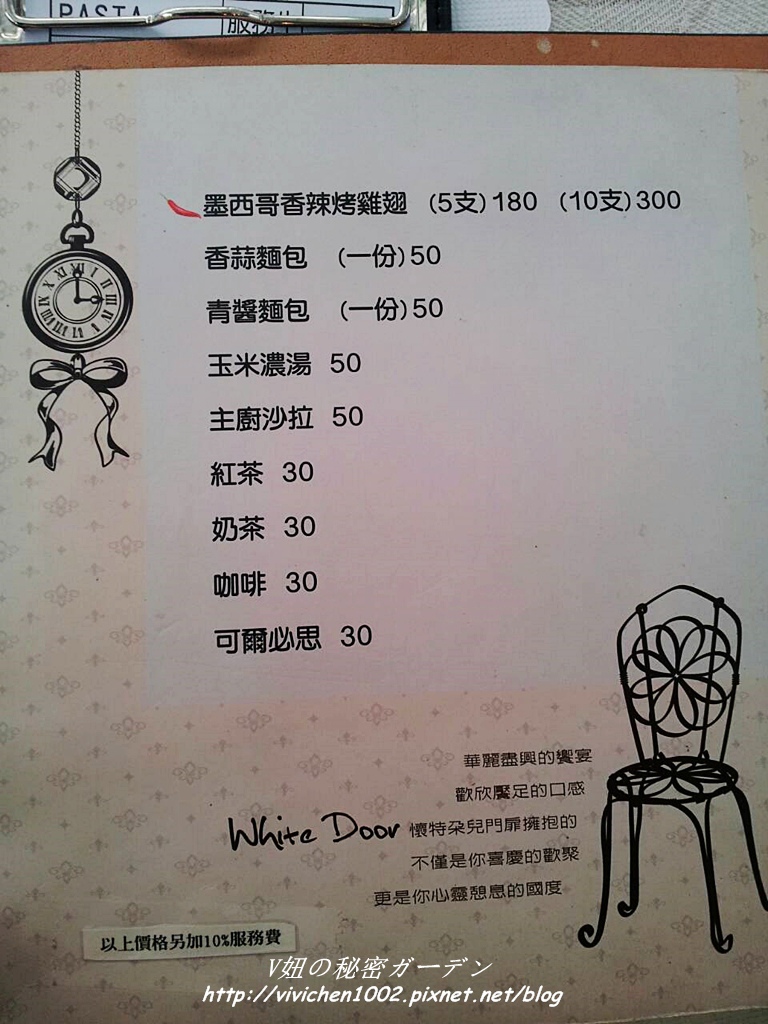 PASTA
服務生
墨西哥香辣烤雞翅 (5支)180 (10支)300
香蒜麵包 (一份)50
青醬麵包 (一份)50
玉米濃湯 50
主廚沙拉 50
紅茶 30
奶茶 30
咖啡 30
可爾必思 30
華麗盡興的饗宴
歡欣饜足的口感
White Door 懷特朵兒門扉擁抱的
不僅是你喜慶的歡聚
更是你心靈憩息的國度
以上價格另加10%服務費
V妞の秘密ガーデン
http://vivichen1002.pixnet.net/blog